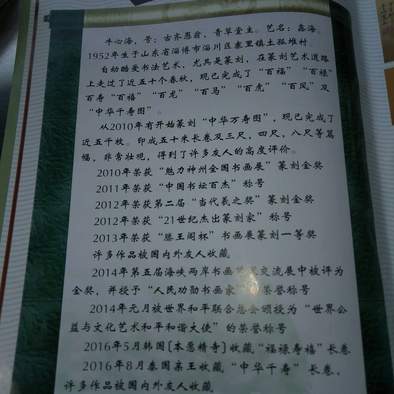 牛心海，号：古齐愚翁，青草堂主。艺名：鑫海。
1952年生于山东省淄博市淄川区寨里镇土孤堆村。
自幼酷爱书法艺术，尤其是篆刻，在篆刻艺术道路
上走过了近五十个春秋，现已完成了“百福”“百禄”
百寿“百禧”“百龙”“百马”“百虎”“百凤”及
“中华千寿图”。
从2010年有开始篆刻“中华万寿图”，现已完成了
近五千枚。印成五十米长卷及三尺，四尺，八尺等篇
幅，非常壮观，得到了许多友人的高度评价。
2010年荣获“魅力神州全国书画展”篆刻金奖
2011年荣获“中国书坛百杰”称号
2012年荣获第二届“当代羲之奖”篆刻金奖
2012年荣获“21世纪杰出篆刻家”称号
2013年荣获“滕王阁杯”书画展篆刻一等奖
许多作品被国内外友人收藏
2014年第五届海峡两岸书画 交流展中被评为
金奖，并授予“人民功勋书画家 荣誉称号
2014年元月被世界和平联合总会颁授为“世界公
益与文化艺术和平和谐大使”的荣誉称号
2016年5月韩国[本愿精寺]收藏“福禄寿禧”长卷
2016年8月泰国亲王收藏“中华千寿”长卷，
许多作品被国内外友人收藏